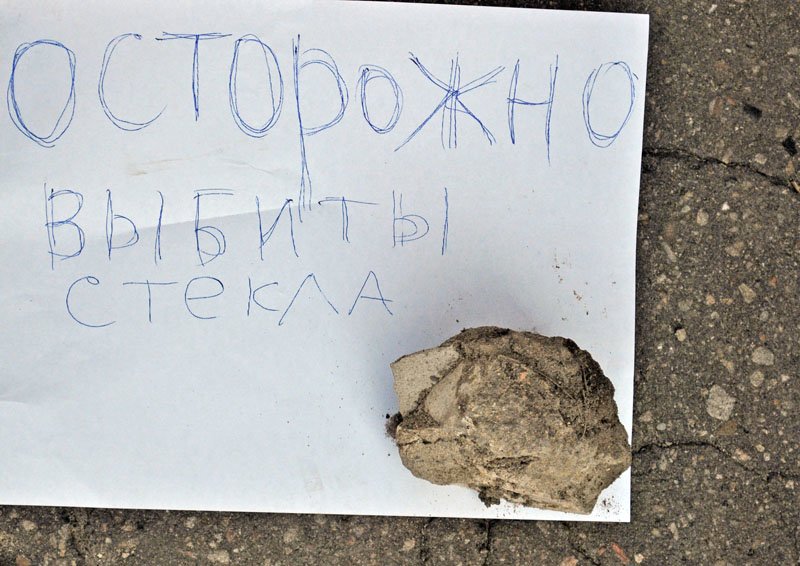 ОСТОРОЖНО
ВЫБИТЫ
СТЕКЛА